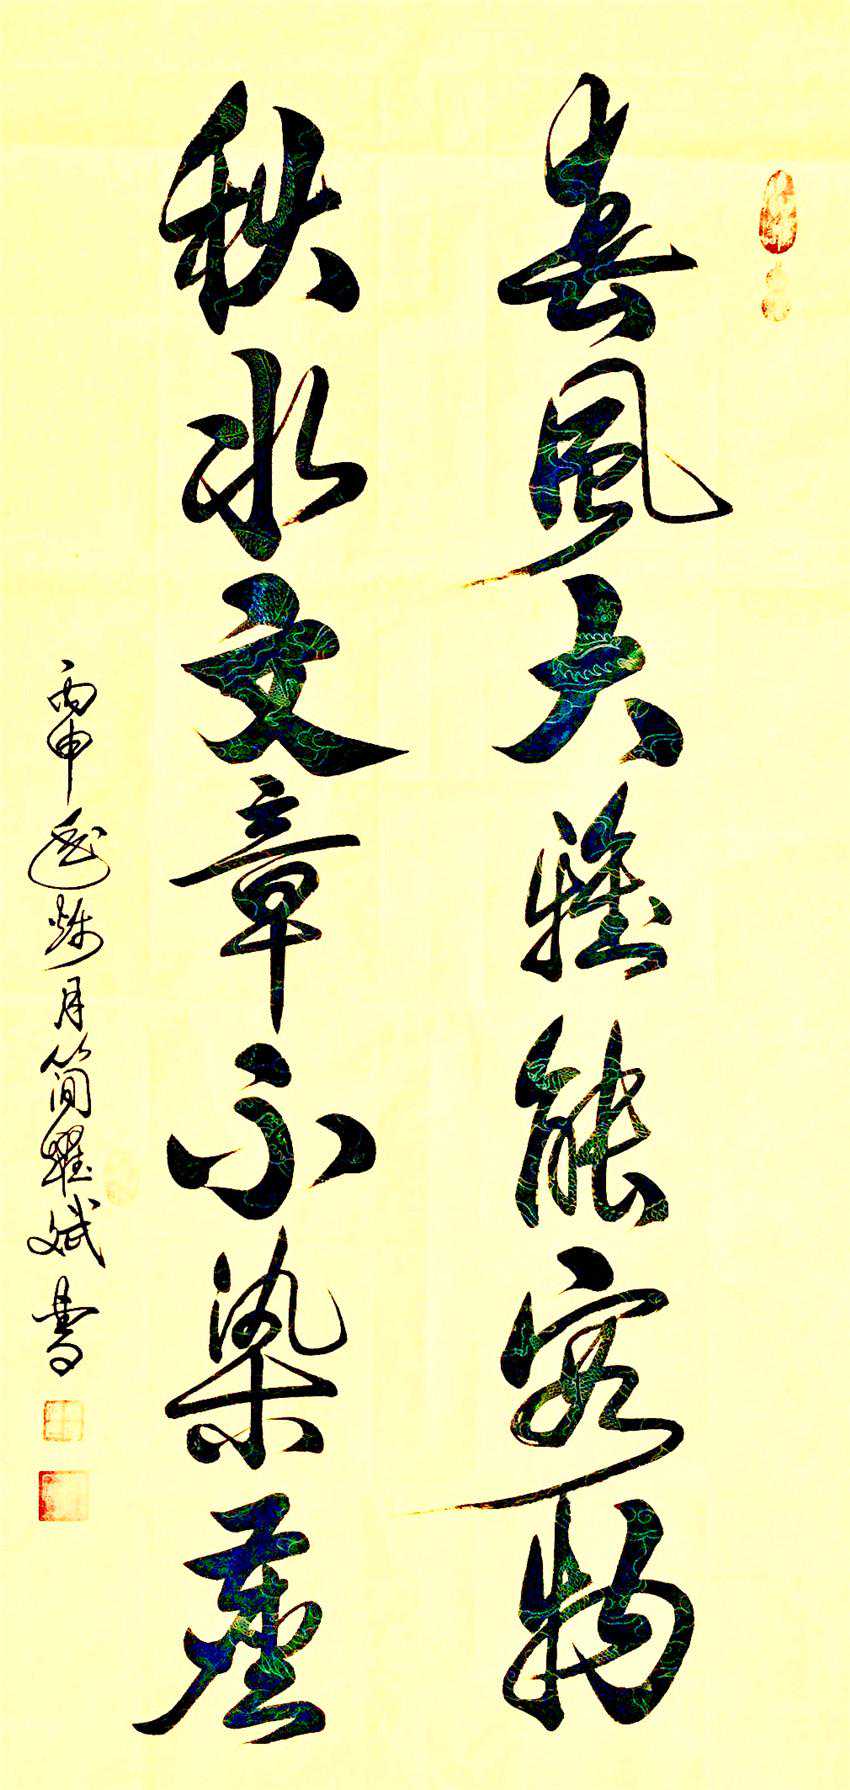 春風大雅能容物
秋水文章不染塵
丙申年 月簡耀斌書